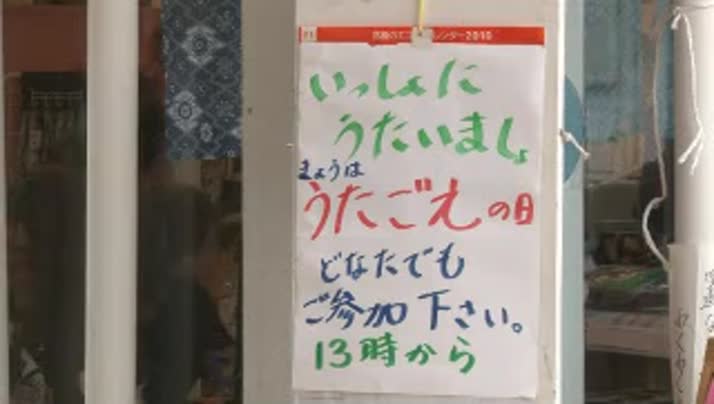 いっしょに
うたいましょ
きょうは
うたごえの日
どなたでも
ご参加下さい。
13時から